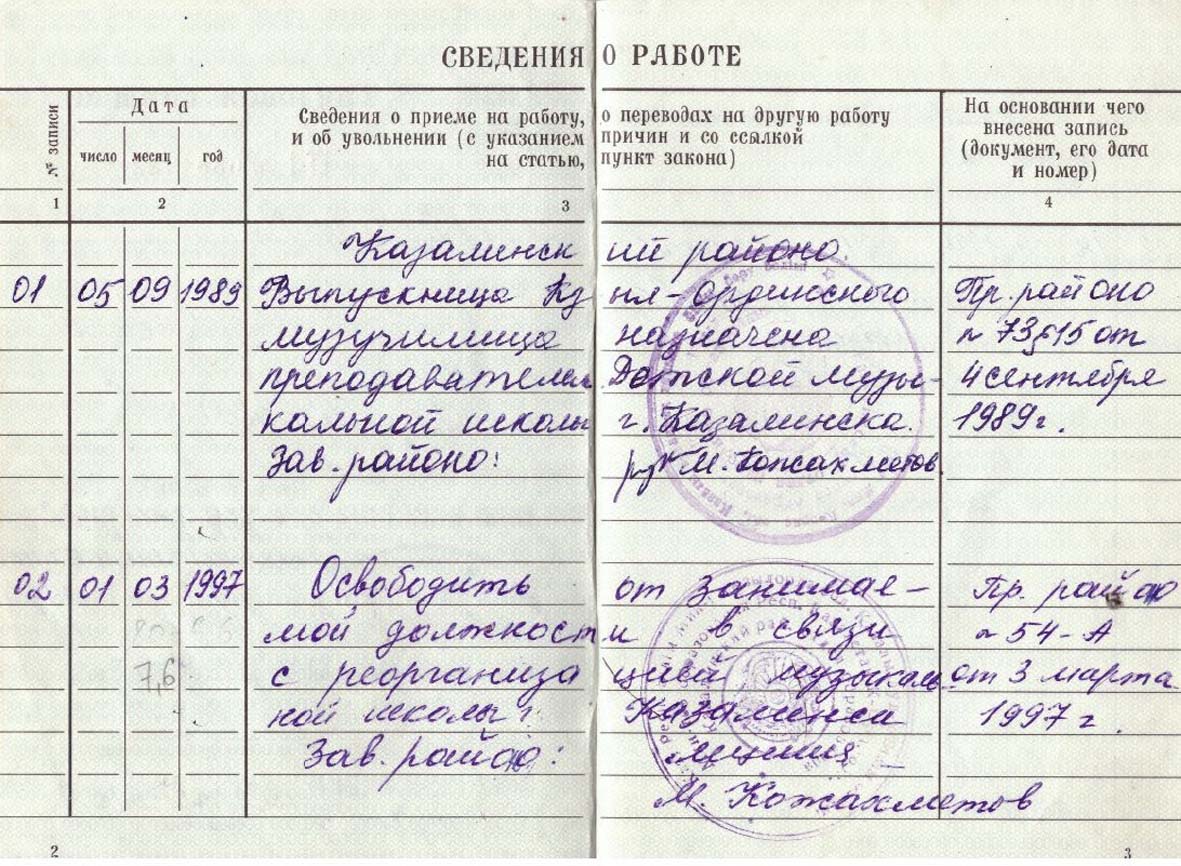 СВЕДЕНИЯ О РАБОТЕ
№ записи
Дата
число месяц год
Сведения о приеме на работу, о переводах на другую работу
и об увольнении (с указанием причин и со ссылкой
на статью, пункт закона)
На основании чего
внесена запись
(документ, его дата
и номер)
1 2 3 4
Казалинский районо.
01 05 09 1989 Выпускница Кзыл-ординского Пр. районо
музучилища назначена № 73§15 от
преподавателем Детской музы- 4 сентября
кальной школы г. Казалинска. 1989г.
Зав. районо: М. Кожахметов
02 01 03 1997 Освободить от занимае- Пр. рай
мой должности в связи № 54-А
7,6 с реорганизацией музыкаль от 3 марта
ной школы г. Казалинса 1997 г.
Зав. рай :
М. Кожахметов
2 3